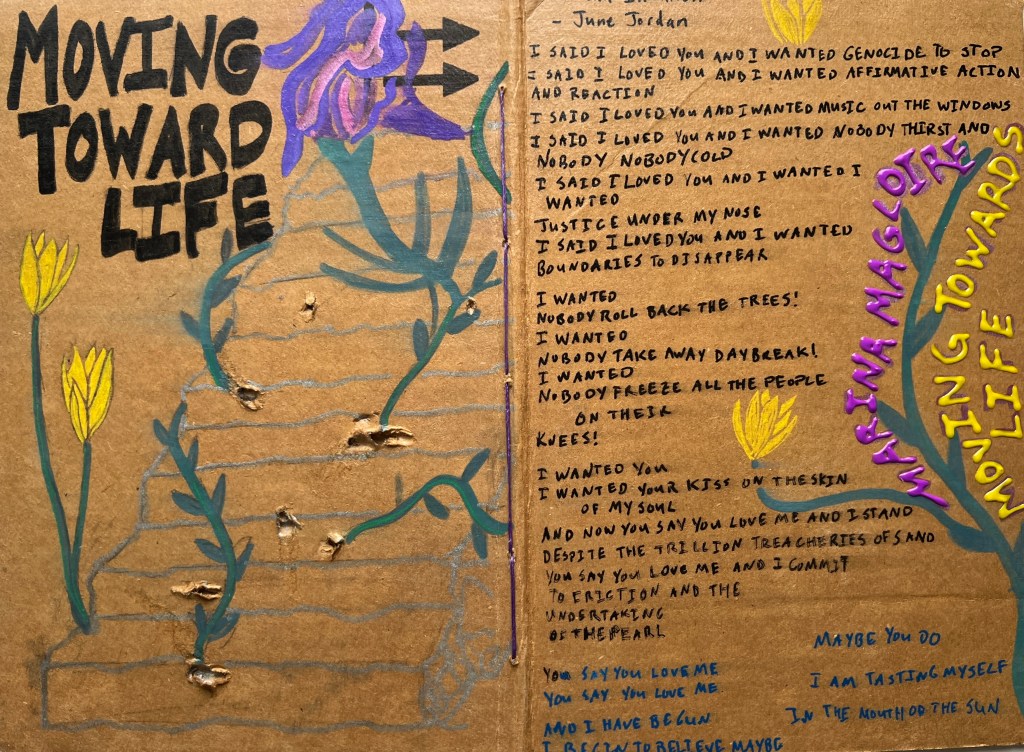 MOVING
TOWARD
LIFE
- June Jordan
I SAID I LOVED YOU AND I WANTED GENOCIDE TO STOP
I SAID I LOVED YOU AND I WANTED AFFIRMATIVE ACTION
AND REACTION
I SAID I LOVED YOU AND I WANTED MUSIC OUT THE WINDOWS
I SAID I LOVED YOU AND I WANTED NOBODY THIRST AND
NOBODY NOBODY COLD
I SAID I LOVED YOU AND I WANTED I
WANTED
JUSTICE UNDER MY NOSE
I SAID I LOVED YOU AND I WANTED
BOUNDARIES TO DISAPPEAR
I WANTED
NOBODY ROLL BACK THE TREES!
I WANTED
NOBODY TAKE AWAY DAYBREAK!
I WANTED
NOBODY FREEZE ALL THE PEOPLE
ON THEIR
KNEES!
I WANTED YOU
I WANTED YOUR KISS ON THE SKIN
OF MY SOUL
AND NOW YOU SAY YOU LOVE ME AND I STAND
DESPITE THE TRILLION TREACHERIES OF SAND
YOU SAY YOU LOVE ME AND I COMMIT
TO FRICTION AND THE
UNDERTAKING
OF THE PEARL
YOU SAY YOU LOVE ME
YOU SAY YOU LOVE ME
AND I HAVE BEGUN
I BEGIN TO BELIEVE MAYBE
MAYBE YOU DO
I AM TASTING MYSELF
IN THE MOUTH OF THE SUN
MARINA MAGLOIRE
MOVING TOWARDS
LIFE